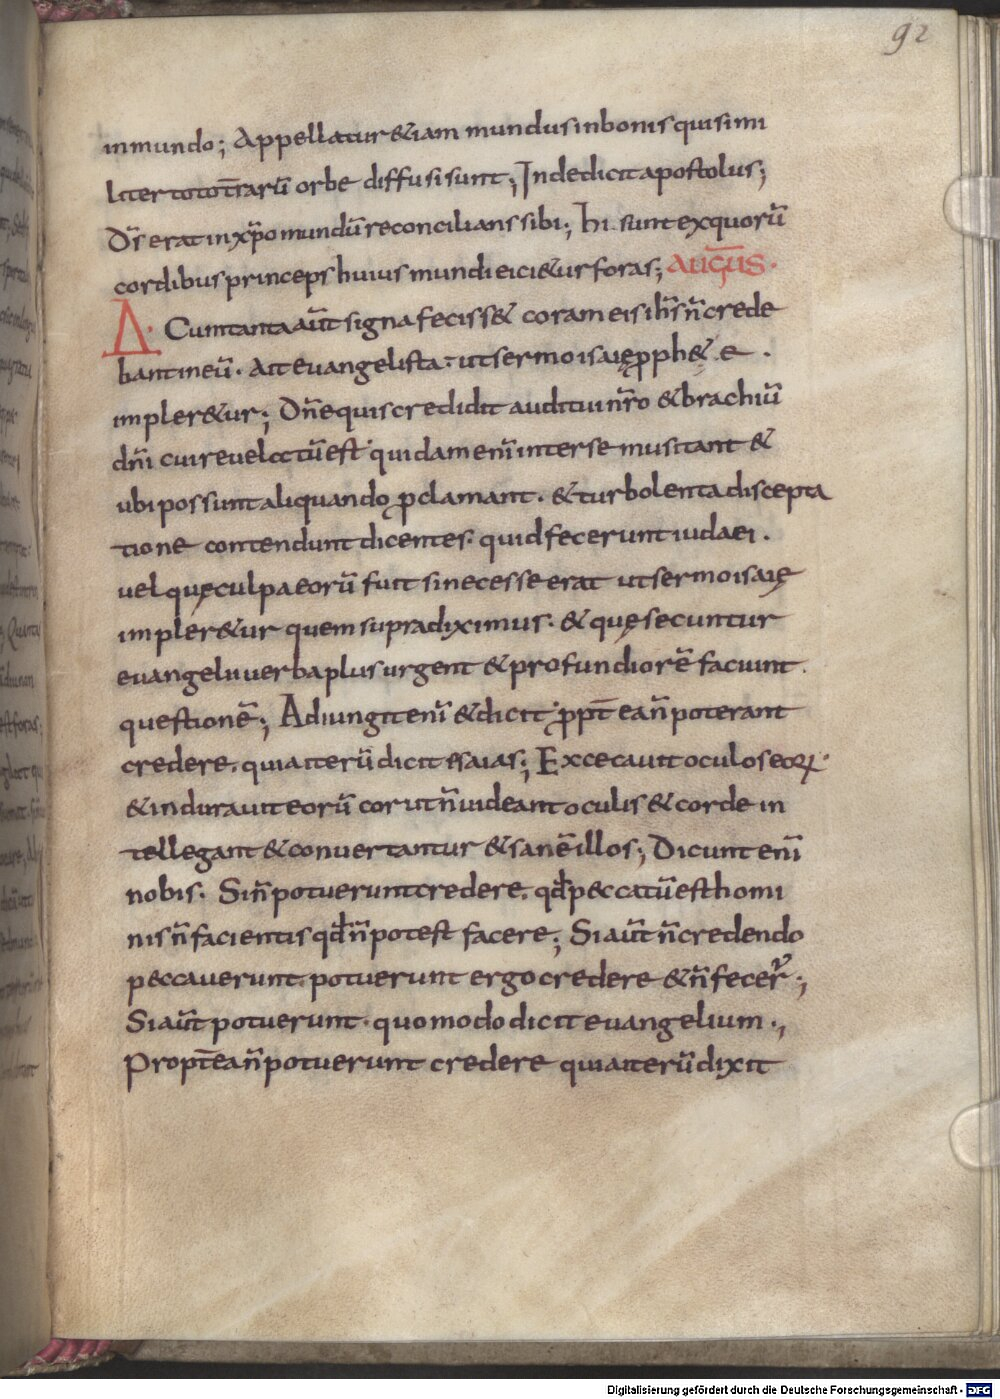 92
inmundo; Appellatur &iam mundus inbonis quisimi
liter totot̅raru̅ orbe diffusi sunt; Inde dicit apostolus;
D̅s erat in xp̅o mundu̅ reconcilians sibi; hi sunt exquoru̅
cordibus princeps huius mundi eici&ur foras; AUG̅US·
Δ· Cum tanta au̅t signa feciss& coram eis ih̅s n̅ crede
bant ineu̅· Ait euangelista· ut sermo isaię pph&ę·
impler&ur; Dn̅e quis credidit auditui nr̅o & brachiu̅
dn̅i cui reuelatu̅ est· quidam eni̅ inter se musitant &
ubi possunt aliquando ꝓclamant· & turbolenta discepta
tione contendunt dicentes· quid fecerunt iudaei·
uel quę culpa eoru̅ fuit si necesse erat ut sermo isaię
impler&ur quem supradiximus· & quę secuntur
euangelii uerba plus urgent & profundiore̅ faciunt·
questione̅; Adiungit eni̅ & dicit· ꝓpt̅ea n̅ poterant
credere· quia iteru̅ dicit esaias; Excecauit oculos eoꝝ·
& indurauit eoru̅ cor ut n̅ uideant oculis & corde in
tellegant & conuertantur & sane̅ illos; Dicunt eni̅
nobis· Si n̅ potuerunt credere· qđ peccatu̅ est homi
nis n̅ facientis qđ n̅ potest facere; Si au̅t n̅ credendo
peccauerunt· potuerunt ergo credere & n̅ fecer̅;
Si au̅t potuerunt· quomodo dicit euangelium·,
Propt̅ea n̅ potuerunt credere quia iteru̅ dixit
Digitalisierung gefördert durch die Deutsche Forschungsgemeinschaft - DFG